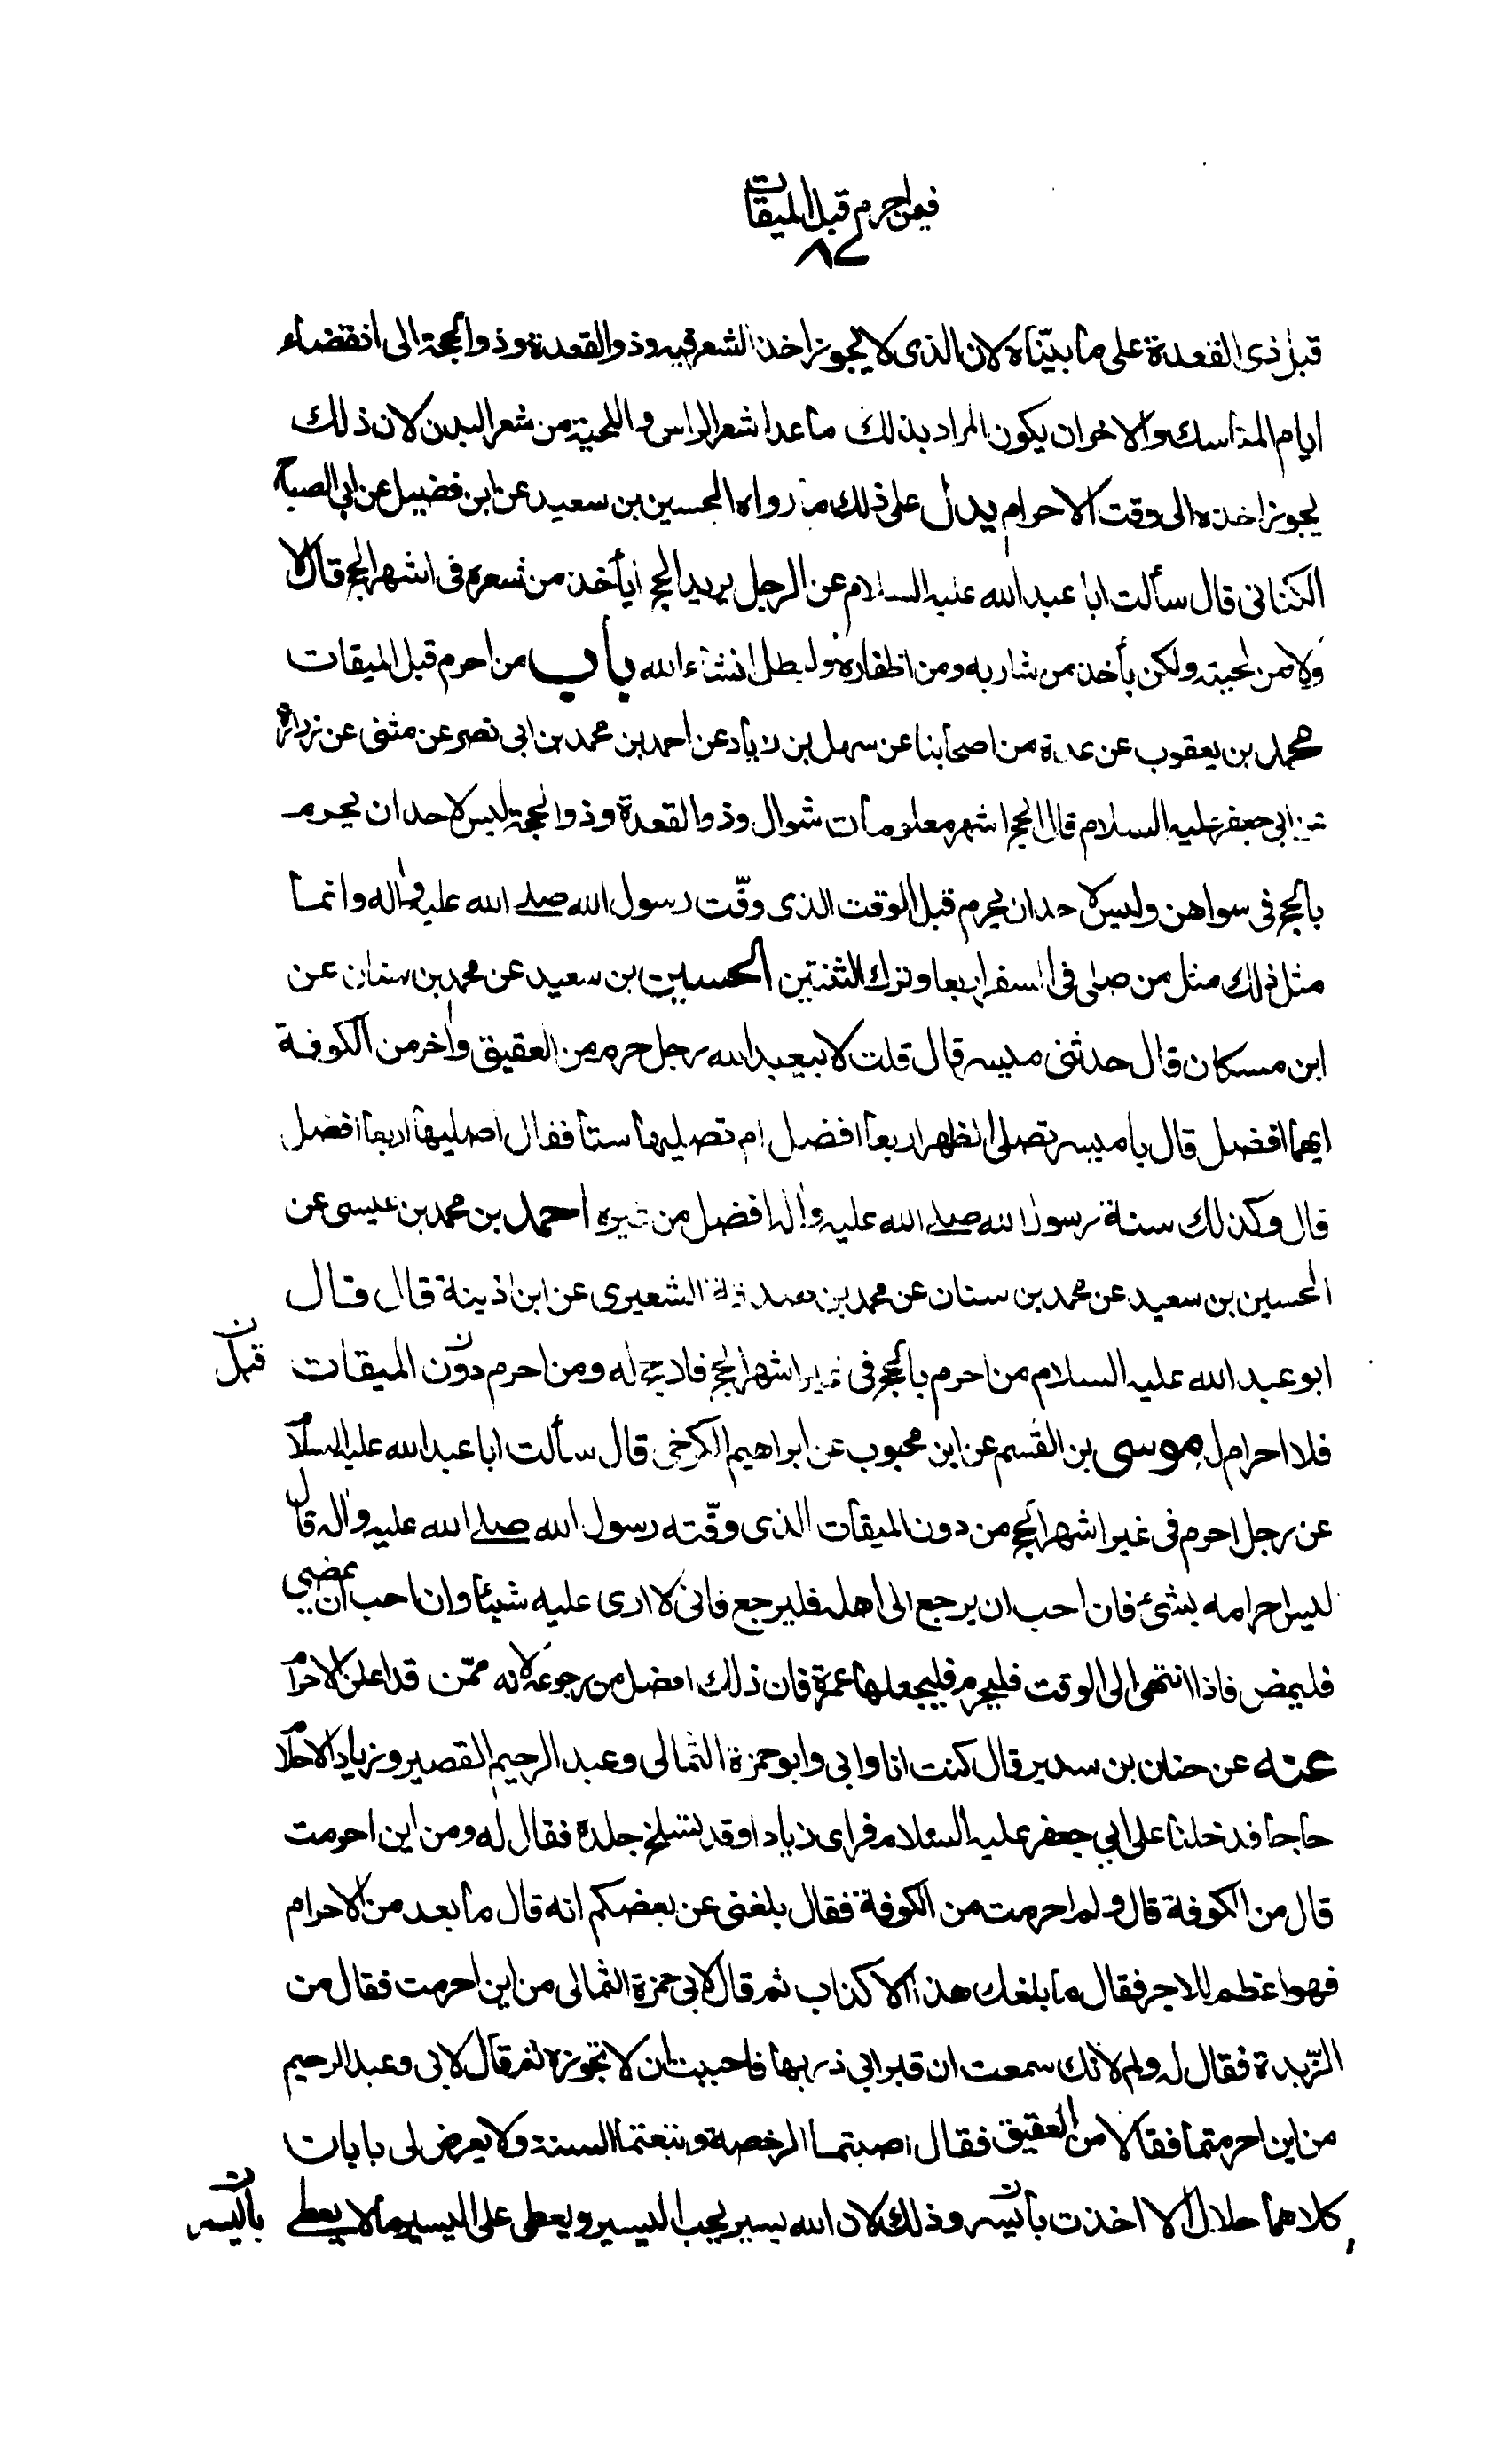 فيمن احرم قبل الميقات
٨٧
قبل ذى القعدة على ما بيّناه لان الذى لا يجوز اخذ الشعر فيه وذو القعدة وذو الحجة الى انقضاء
ايام المناسك والاخر ان يكون المراد بذلك ما عدا شعر الراس و اللحية من شعر البدن لان ذلك
يجوز اخذه الى وقت الاحرام يدل على ذلك ما رواه الحسين بن سعيد عن ابن فضيل عن ابى الصباح
الكنانى قال سألت ابا عبد الله عليه السلام عن الرجل يريد الحج أيأخذ من شعره فى اشهر الحج قال لا
ولا من لحيته ولكن يأخذ من شاربه ومن اظفاره وليطل انشاء الله باب من احرم قبل الميقات
محمد بن يعقوب عن عدة من اصحابنا عن سهل بن زياد عن احمد بن محمد بن ابى نصر عن مثنى عن زرارة
عن ابى جعفر عليه السلام قال الحج اشهر معلومات شوال وذو القعدة وذو الحجة ليس لاحد ان يحرم
بالحج فى سواهن وليس لاحد ان يحرم قبل الوقت الذى وقّت رسول الله صلى الله عليه واله وانما
مثل ذلك مثل من صلى فى السفر اربعا وترك الثنتين الحسين بن سعيد عن محمد بن سنان عن
ابن مسكان قال حدثنى ميسر قال قلت لابيعبد الله رجل احرم من العقيق واخر من الكوفة
ايهما افضل قال يا ميسر تصلى الظهر اربعا افضل ام تصليها ستا فقال اصليها اربعا افضل
قال وكذلك سنة رسول الله صلى الله عليه واله افضل من غيره احمد بن محمد بن عيسى عن
الحسين بن سعيد عن محمد بن سنان عن محمد بن صدقة الشعيرى عن ابن اذينة قال قال
ابو عبد الله عليه السلام من احرم بالحج فى غير اشهر الحج فلا حج له ومن احرم دون الميقات قبل ن
فلا احرام له موسى بن القسم عن ابن محبوب عن ابراهيم الكرخى قال سألت ابا عبد الله عليه السلام
عن رجل احرم فى غير اشهر الحج من دون الميقات الذى وقّته رسول الله صلى الله عليه واله قال
ليس احرامه بشئ فان احب ان يرجع الى اهله فليرجع فانى لا ارى عليه شيئا وان احب ان يمضى
فليمض فاذا انتهى الى الوقت فليحرم فليجعلها عمرة فان ذلك افضل من رجوعه لانه ممّن قد اعلن الاحرام
عنه عن حنان بن سدير قال كنت انا وابى وابو حمزة الثمالى وعبد الرحيم القصير وزياد الاحلام
حاجا فدخلنا على ابى جعفر عليه السلام فراى زيادا وقد يتسلخ جلده فقال له ومن اين احرمت
قال من الكوفة قال ولم احرمت من الكوفة فقال بلغنى عن بعضكم انه قال ما بعد من الاحرام
فهو اعظم للاجر فقال ما بلغك هذا الا كذاب ثم قال لابى حمزة الثمالى من اين احرمت فقال من
الرّبذة فقال له ولم لانك سمعت ان قبر ابى ذر بها فاحببت ان لا تجوزه ثم قال لابى وعبد الرحيم
من اين احرمتما فقالا من العقيق فقال اصبتما الرخصة وتبعتما السنة ولا يعرض لى بابان
كلاهما حلال الا اخذت باليسر وذلك لان الله يسير يحب اليسير ويعطى على اليسير ما لا يعطى باليسر ن